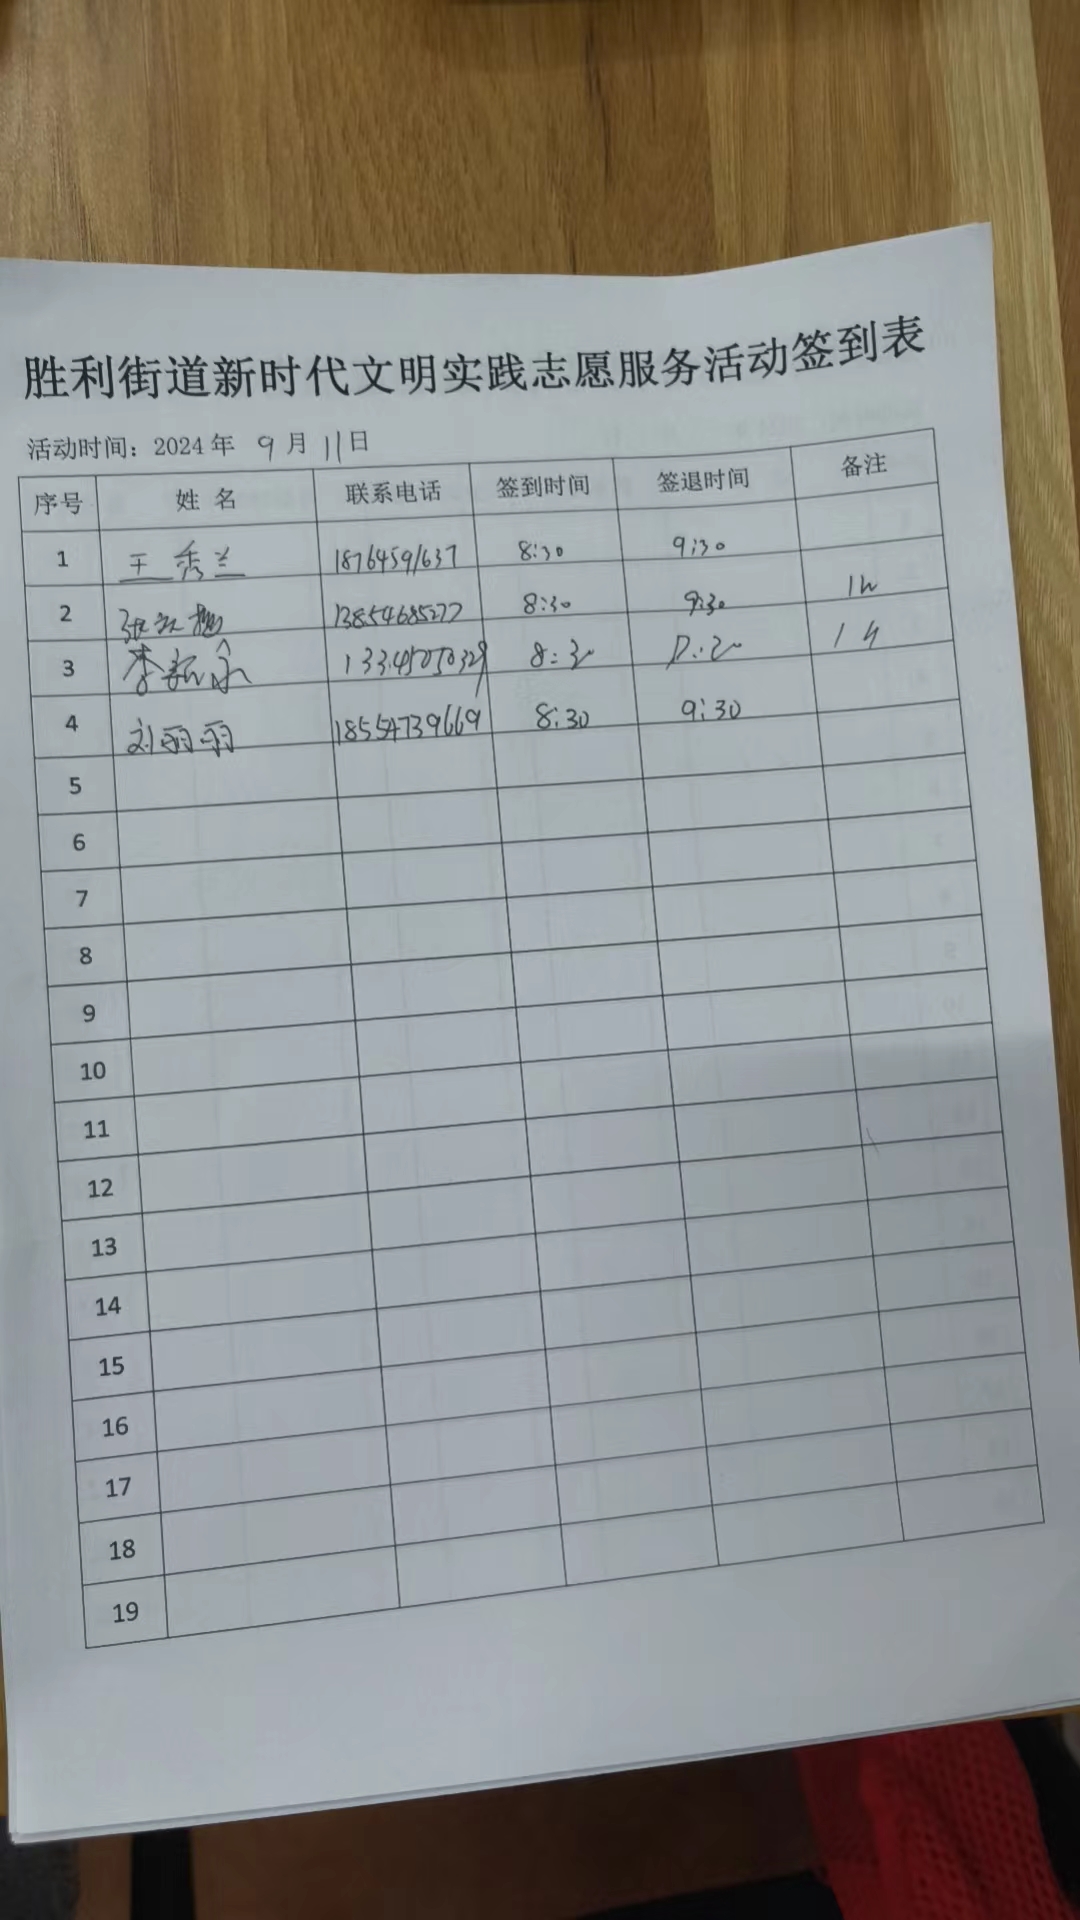 胜利街道新时代文明实践志愿服务活动签到表
活动时间：2024 年 9 月 11 日
序号 姓 名 联系电话 签到时间 签退时间 备注
1 王秀兰 18764591637 8:30 9:30
2 13854685277 8:30 9:30 1h
3 李 8:30 1h
4 刘丽丽 18554739669 8:30 9:30
5
6
7
8
9
10
11
12
13
14
15
16
17
18
19